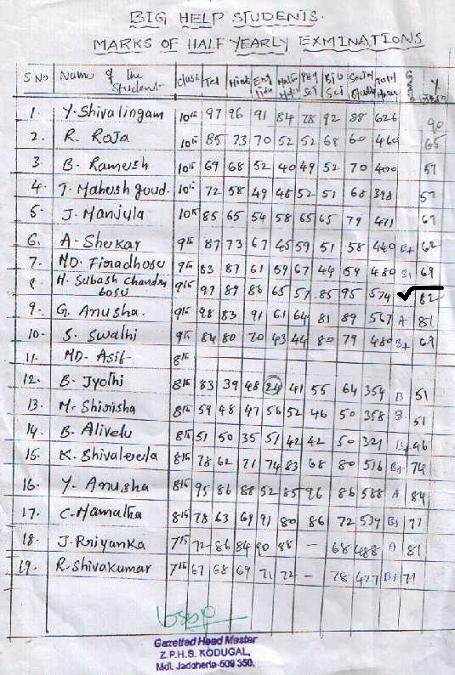 BIG HELP STUDENTS.
MARKS OF HALF YEARLY EXMINATIONS
S No Name of the Student class Tel Hindi Eng Maths Phy Sci Bio Sci Social Total
1. Y. Shivalingam 10th 97 96 91 84 78 92 88 626 90
2. R. Raja 10th 85 73 70 52 52 68 60 460 65
3 B. Ramesh 10th 69 68 52 40 49 52 70 400 57
4. T. Mahesh goud. 10th 72 58 49 48 52 51 68 398 57
5. J. Manjula 10th 85 65 54 58 65 65 79 471 67
6. A. Shekar 9th 87 73 67 45 59 51 58 440 B2 62
7. MD. Firadhosu 9th 83 87 61 69 67 44 69 480 B1 69
8. H. Subash Chandra bosu 9th 97 89 88 65 57 85 95 574 82
9. G. Anusha. 9th 98 83 91 61 64 81 89 567 A 81
10. S. Swathi 9th 84 80 70 43 44 80 79 480 B1 69
11. MD. Asif 8th
12. B. Jyothi 8th 83 39 48 24 41 55 64 354 B 51
13. M. Shirisha 8th 59 48 47 56 52 46 50 358 B 51
14. B. Alivelu 8th 51 50 35 51 42 42 50 321 46
15. K. Shivaleela 8th 78 62 71 74 83 68 80 516 B1 74
16. Y. Anusha 8th 95 86 88 52 85 96 86 588 A 84
17. C. Mamatha 8th 78 63 69 91 80 86 72 539 B1 77
18. J. Priyanka 7th 72 86 84 90 88 - 68 488 A 81
19. R. Shivakumar 7th 67 68 69 72 72 - 78 427 B1 71
Gazetted Head Master
Z.P.H.S. KODUGAL,
Mdl. Jadcherla-509 350.